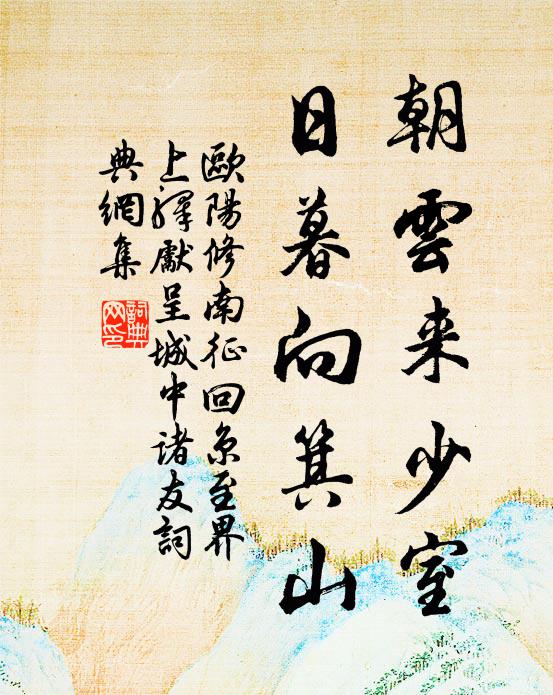 朝雲来少室
日暮向箕山
歐陽修南征回京至界
上驛獻呈城中諸友詞
典網集
詞典
网印